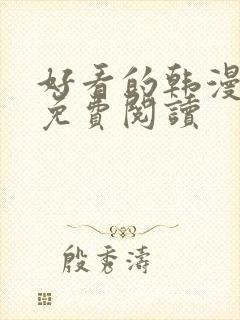 好看的韩漫
免費閱讀
殷秀濤